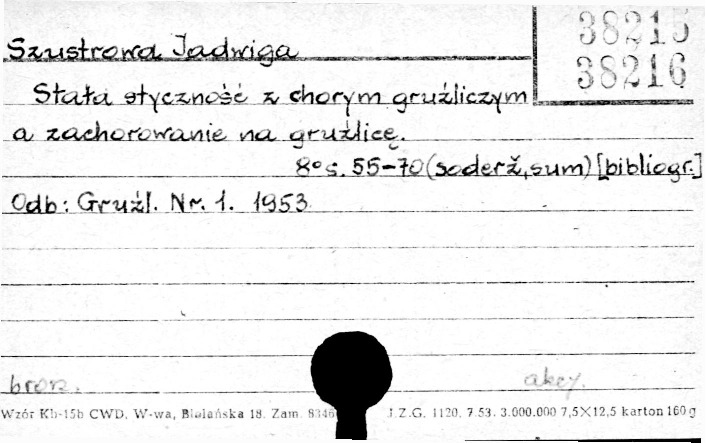 38215
Szustrowa Jadwiga
38216
Stała styczność z chorym gruźliczym
a zachorowanie na gruźlicę.
8° s. 55-70 (soderž, sum) [bibliogr.]
Odb: Gruźl. Nr. 1. 1953
brosz. akc.
Wzór Kb-15b CWD. W-wa, Bielańska 18. Zam. 8346 J.Z.G. 1120. 7.53. 3.000.000 7,5×12,5 karton 160 g